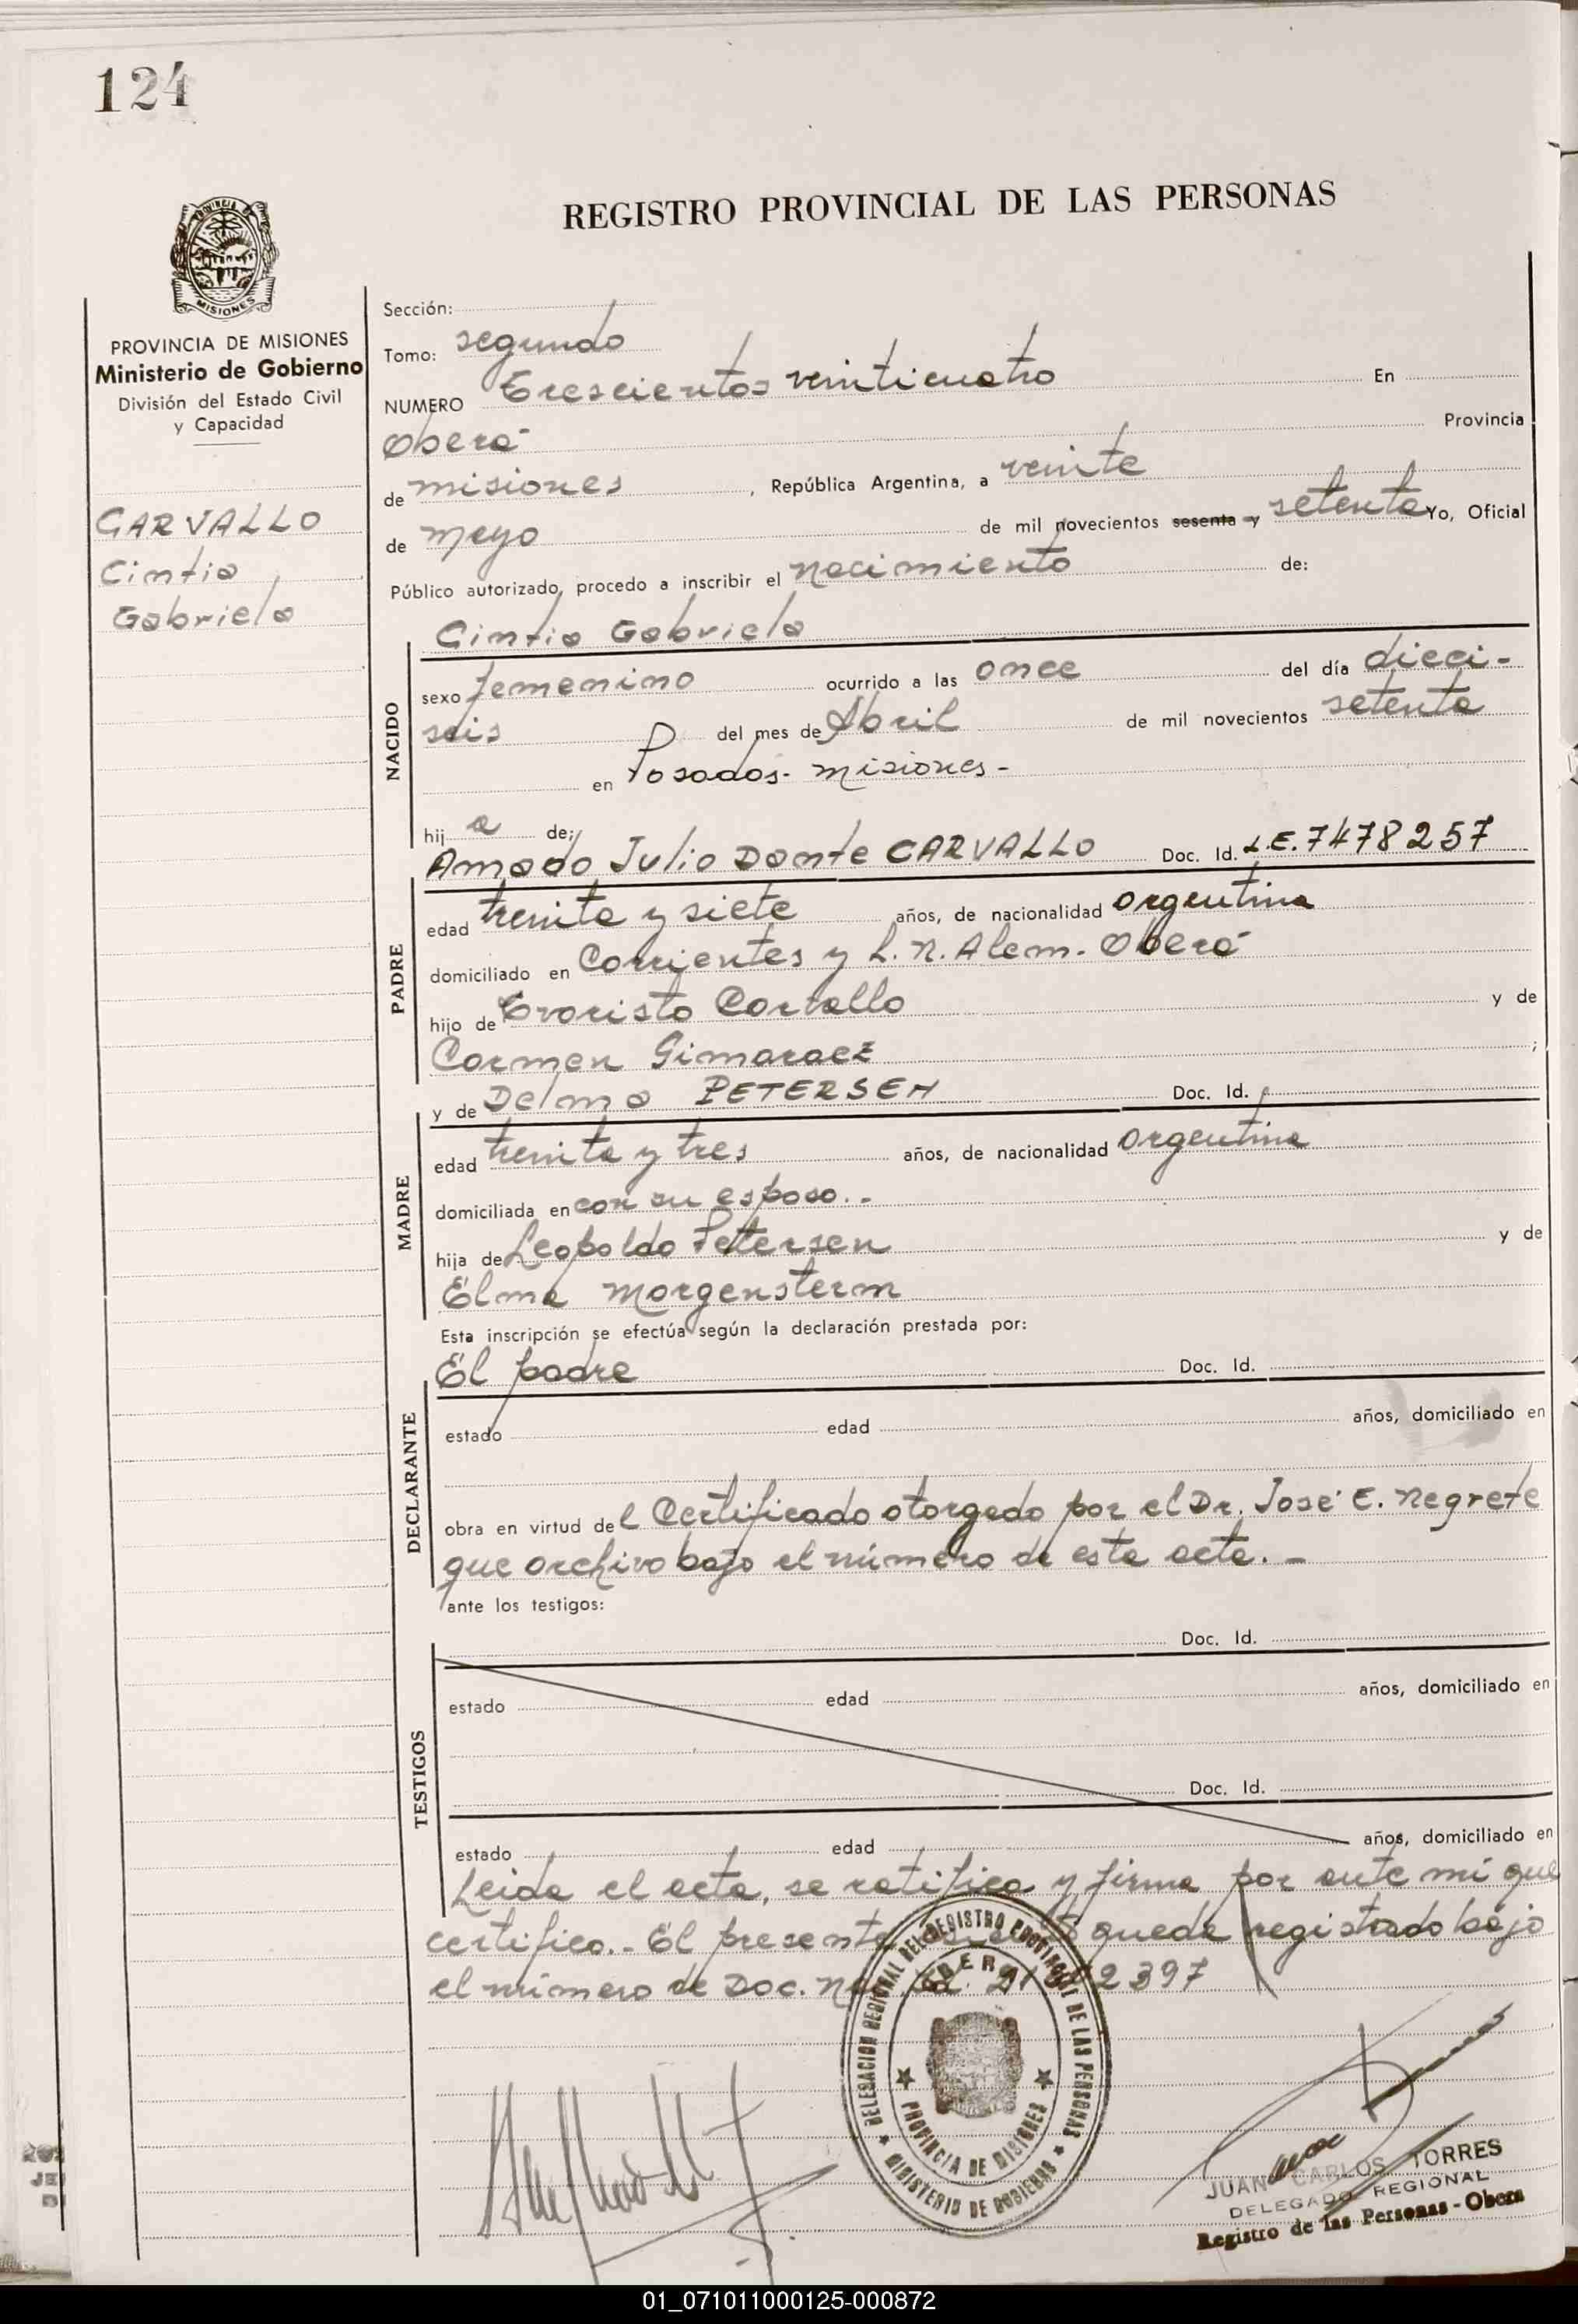 124
REGISTRO PROVINCIAL DE LAS PERSONAS
MISIONES
PROVINCIA DE MISIONES
Ministerio de Gobierno
División del Estado Civil
y Capacidad
CARVALLO
Cintia
Gabriela
Sección:
Tomo: segundo
NUMERO Trescientos veinticuatro En
Oberá Provincia
de misiones, República Argentina, a veinte
de mayo de mil novecientos sesenta y setenta Yo, Oficial
Público autorizado, procedo a inscribir el nacimiento de:
Cintia Gabriela
NACIDO
sexo femenino ocurrido a las once del día dieci-
seis del mes de Abril de mil novecientos setenta
en Posadas- misiones-
hij a de;
Amado Julio Dante CARVALLO Doc. Id. L.E. 7478257
PADRE
edad treinta y siete años, de nacionalidad argentina
domiciliado en Corrientes y L.N. Alem. Oberá
hijo de Evaristo Carvallo y de
Carmen Gimaraez ;
y de Delma PETERSEN Doc. Id.
MADRE
edad treinta y tres años, de nacionalidad argentina
domiciliada en con su esposo.-
hija de Leopoldo Petersen y de
Elma Morgensterm
Esta inscripción se efectúa según la declaración prestada por:
El padre Doc. Id.
DECLARANTE
estado edad años, domiciliado en
obra en virtud del Certificado otorgado por el Dr. José E. Negrete
que archivo bajo el número de esta acta.-
ante los testigos:
Doc. Id.
TESTIGOS
estado edad años, domiciliado en
Doc. Id.
estado edad años, domiciliado en
Leida el acta, se ratifica y firma por ante mi que
certifico.- El presente queda registrado bajo
el número de Doc. 2397
DELEGACION REGIONAL DEL REGISTRO PROVINCIAL DE LAS PERSONAS
OBERA
PROVINCIA DE MISIONES
MINISTERIO DE GOBIERNO
JUAN CARLOS TORRES
DELEGADO REGIONAL
Registro de las Personas - Obera
01_071011000125-000872